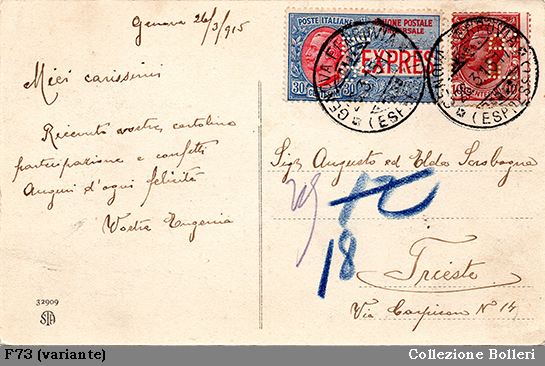 Genova 26/3/915
Miei carissimi
Ricevuto vostra cartolina
partecipazione e confetti
Auguri d'ogni felicità
Vostra Eugenia
32909
STA
POSTE ITALIANE UNIONE POSTALE
UNIVERSALE
EXPRES
30 CENT 30
GENOVA FERROVIA
(ESP)
GENOVA FERROVIA
(ESP)
Sigr Augusto ed Elda
12
18
Trieste
Via N° 14
F73 (variante)
Collezione Bolleri